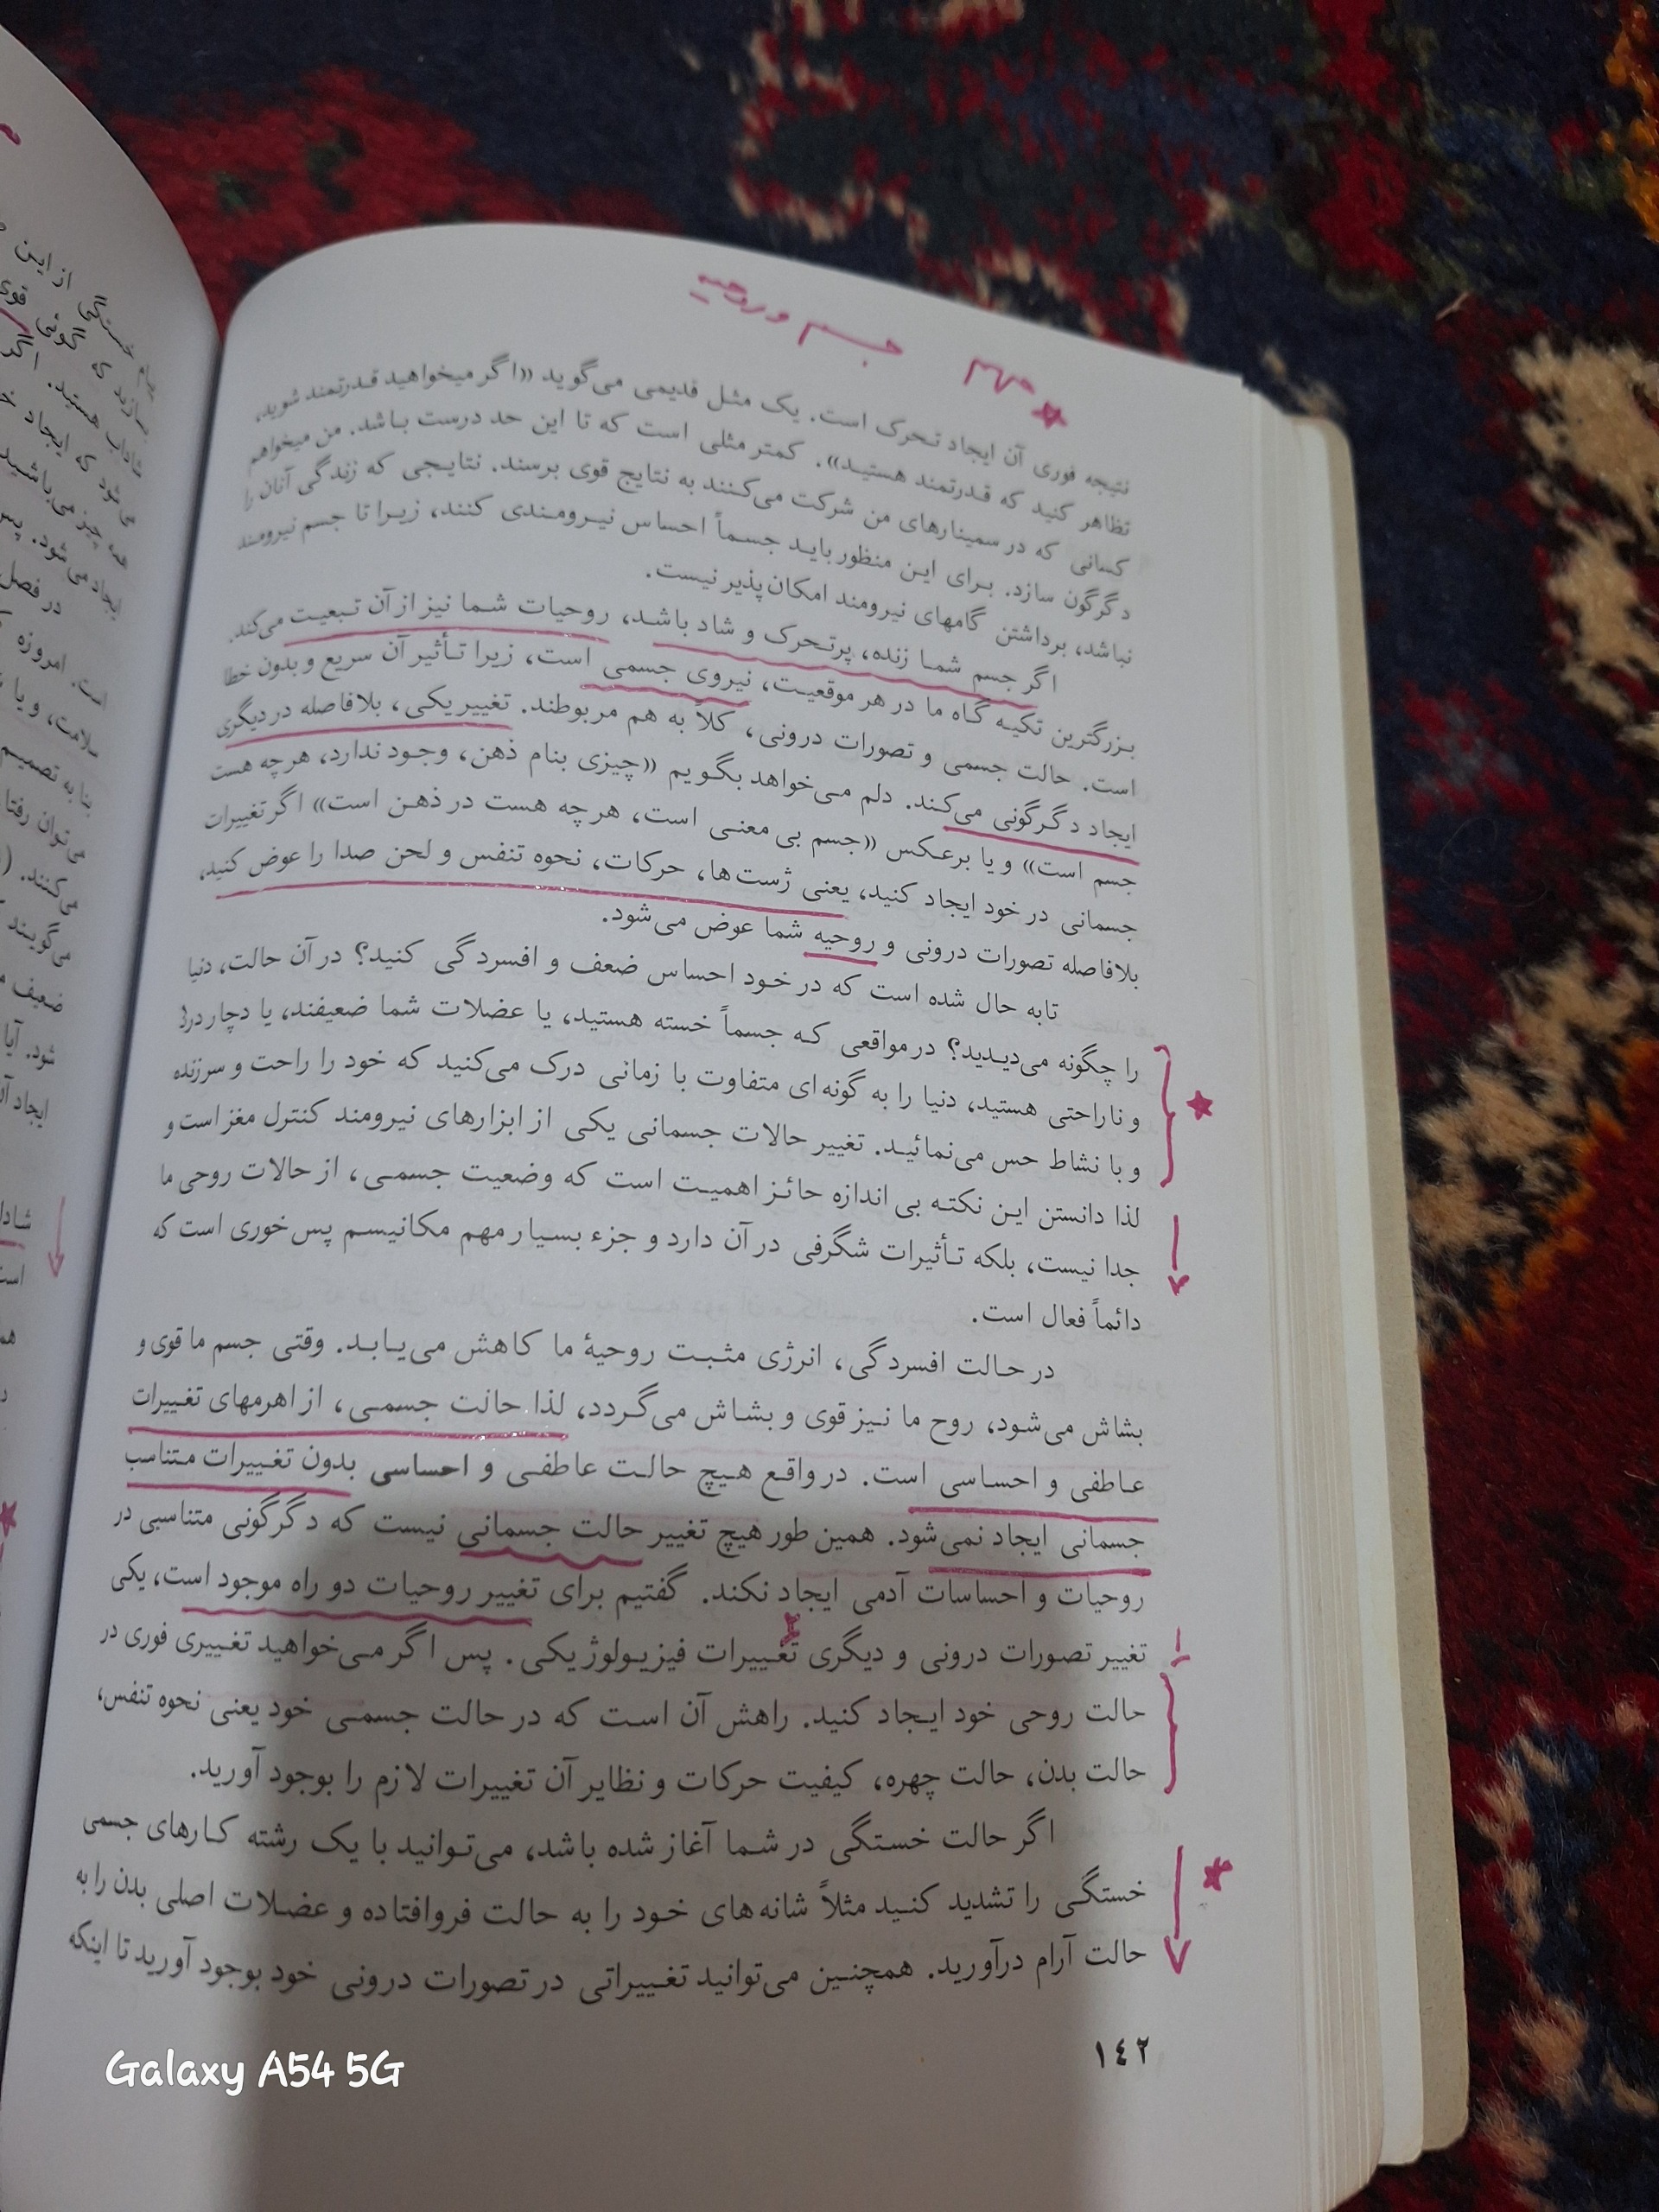 مهم جسم و روحیه
نتیجه فوری آن ایجاد تحرک است. یک مثل قدیمی می‌گوید «اگر میخواهید قدرتمند شوید،
تظاهر کنید که قدرتمند هستید». کمتر مثلی است که تا این حد درست باشد. من میخواهم
کسانی که در سمینارهای من شرکت می‌کنند به نتایج قوی برسند. نتایجی که زندگی آنان را
دگرگون سازد. برای این منظور باید جسماً احساس نیرومندی کنند، زیرا تا جسم نیرومند
نباشد، برداشتن گامهای نیرومند امکان‌پذیر نیست.
اگر جسم شما زنده، پرتحرک و شاد باشد، روحیات شما نیز از آن تبعیت می‌کند.
بزرگترین تکیه گاه ما در هر موقعیت، نیروی جسمی است، زیرا تأثیر آن سریع و بدون خطا
است. حالت جسمی و تصورات درونی، کلاً به هم مربوطند. تغییر یکی، بلافاصله در دیگری
ایجاد دگرگونی می‌کند. دلم می‌خواهد بگویم «چیزی بنام ذهن، وجود ندارد، هر چه هست
جسم است» و یا برعکس «جسم بی معنی است، هر چه هست در ذهن است» اگر تغییرات
جسمانی در خود ایجاد کنید، یعنی ژست‌ها، حرکات، نحوه تنفس و لحن صدا را عوض کنید،
بلافاصله تصورات درونی و روحیه شما عوض می‌شود.
تابه حال شده است که در خود احساس ضعف و افسردگی کنید؟ در آن حالت، دنیا
را چگونه می‌دیدید؟ در مواقعی که جسماً خسته هستید، یا عضلات شما ضعیفند، یا دچار درد
و ناراحتی هستید، دنیا را به گونه‌ای متفاوت با زمانی درک می‌کنید که خود را راحت و سرزنده
و با نشاط حس می‌نمائید. تغییر حالات جسمانی یکی از ابزارهای نیرومند کنترل مغز است و
لذا دانستن این نکته بی اندازه حائز اهمیت است که وضعیت جسمی، از حالات روحی ما
جدا نیست، بلکه تأثیرات شگرفی در آن دارد و جزء بسیار مهم مکانیسم پس‌خوری است که
دائماً فعال است.
در حالت افسردگی، انرژی مثبت روحیهٔ ما کاهش می‌یابد. وقتی جسم ما قوی و
بشاش می‌شود، روح ما نیز قوی و بشاش می‌گردد، لذا حالت جسمی، از اهرمهای تغییرات
عاطفی و احساسی است. در واقع هیچ حالت عاطفی و احساسی بدون تغییرات متناسب
جسمانی ایجاد نمی‌شود. همین طور هیچ تغییر حالت جسمانی نیست که دگرگونی متناسبی در
روحیات و احساسات آدمی ایجاد نکند. گفتیم برای تغییر روحیات دو راه موجود است، یکی
تغییر تصورات درونی و دیگری تغییرات فیزیولوژیکی. پس اگر می‌خواهید تغییری فوری در
حالت روحی خود ایجاد کنید. راهش آن است که در حالت جسمی خود یعنی نحوه تنفس،
حالت بدن، حالت چهره، کیفیت حرکات و نظایر آن تغییرات لازم را بوجود آورید.
اگر حالت خستگی در شما آغاز شده باشد، می‌توانید با یک رشته کارهای جسمی
خستگی را تشدید کنید مثلاً شانه‌های خود را به حالت فروافتاده و عضلات اصلی بدن را به
حالت آرام درآورید. همچنین می‌توانید تغییراتی در تصورات درونی خود بوجود آورید تا اینکه
١٤٢
Galaxy A54 5G